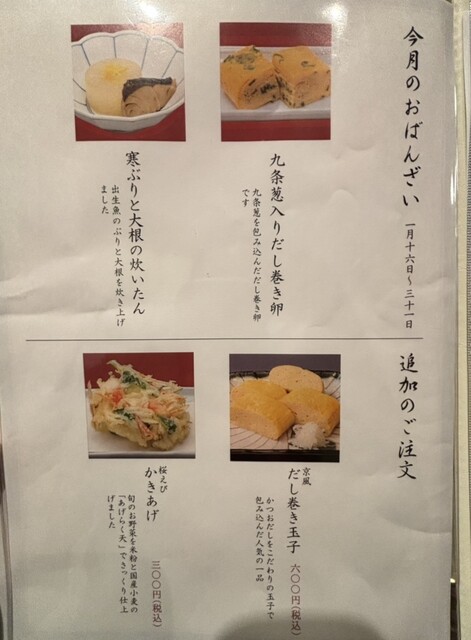 今月のおばんざい 一月十六日~三十一日
九条葱入りだし巻き卵
九条葱を包み込んだだし巻き卵
です
寒ぶりと大根の炊いたん
出生魚のぶりと大根を炊き上げ
ました
追加のご注文
京風
だし巻き玉子 六〇〇円(税込)
かつおだしをこだわりの玉子で
包み込んだ人気の一品
桜えび
かきあげ 三〇〇円(税込)
旬のお野菜を米粉と国産小麦の
「あげらく天」でさっくり仕上
げました